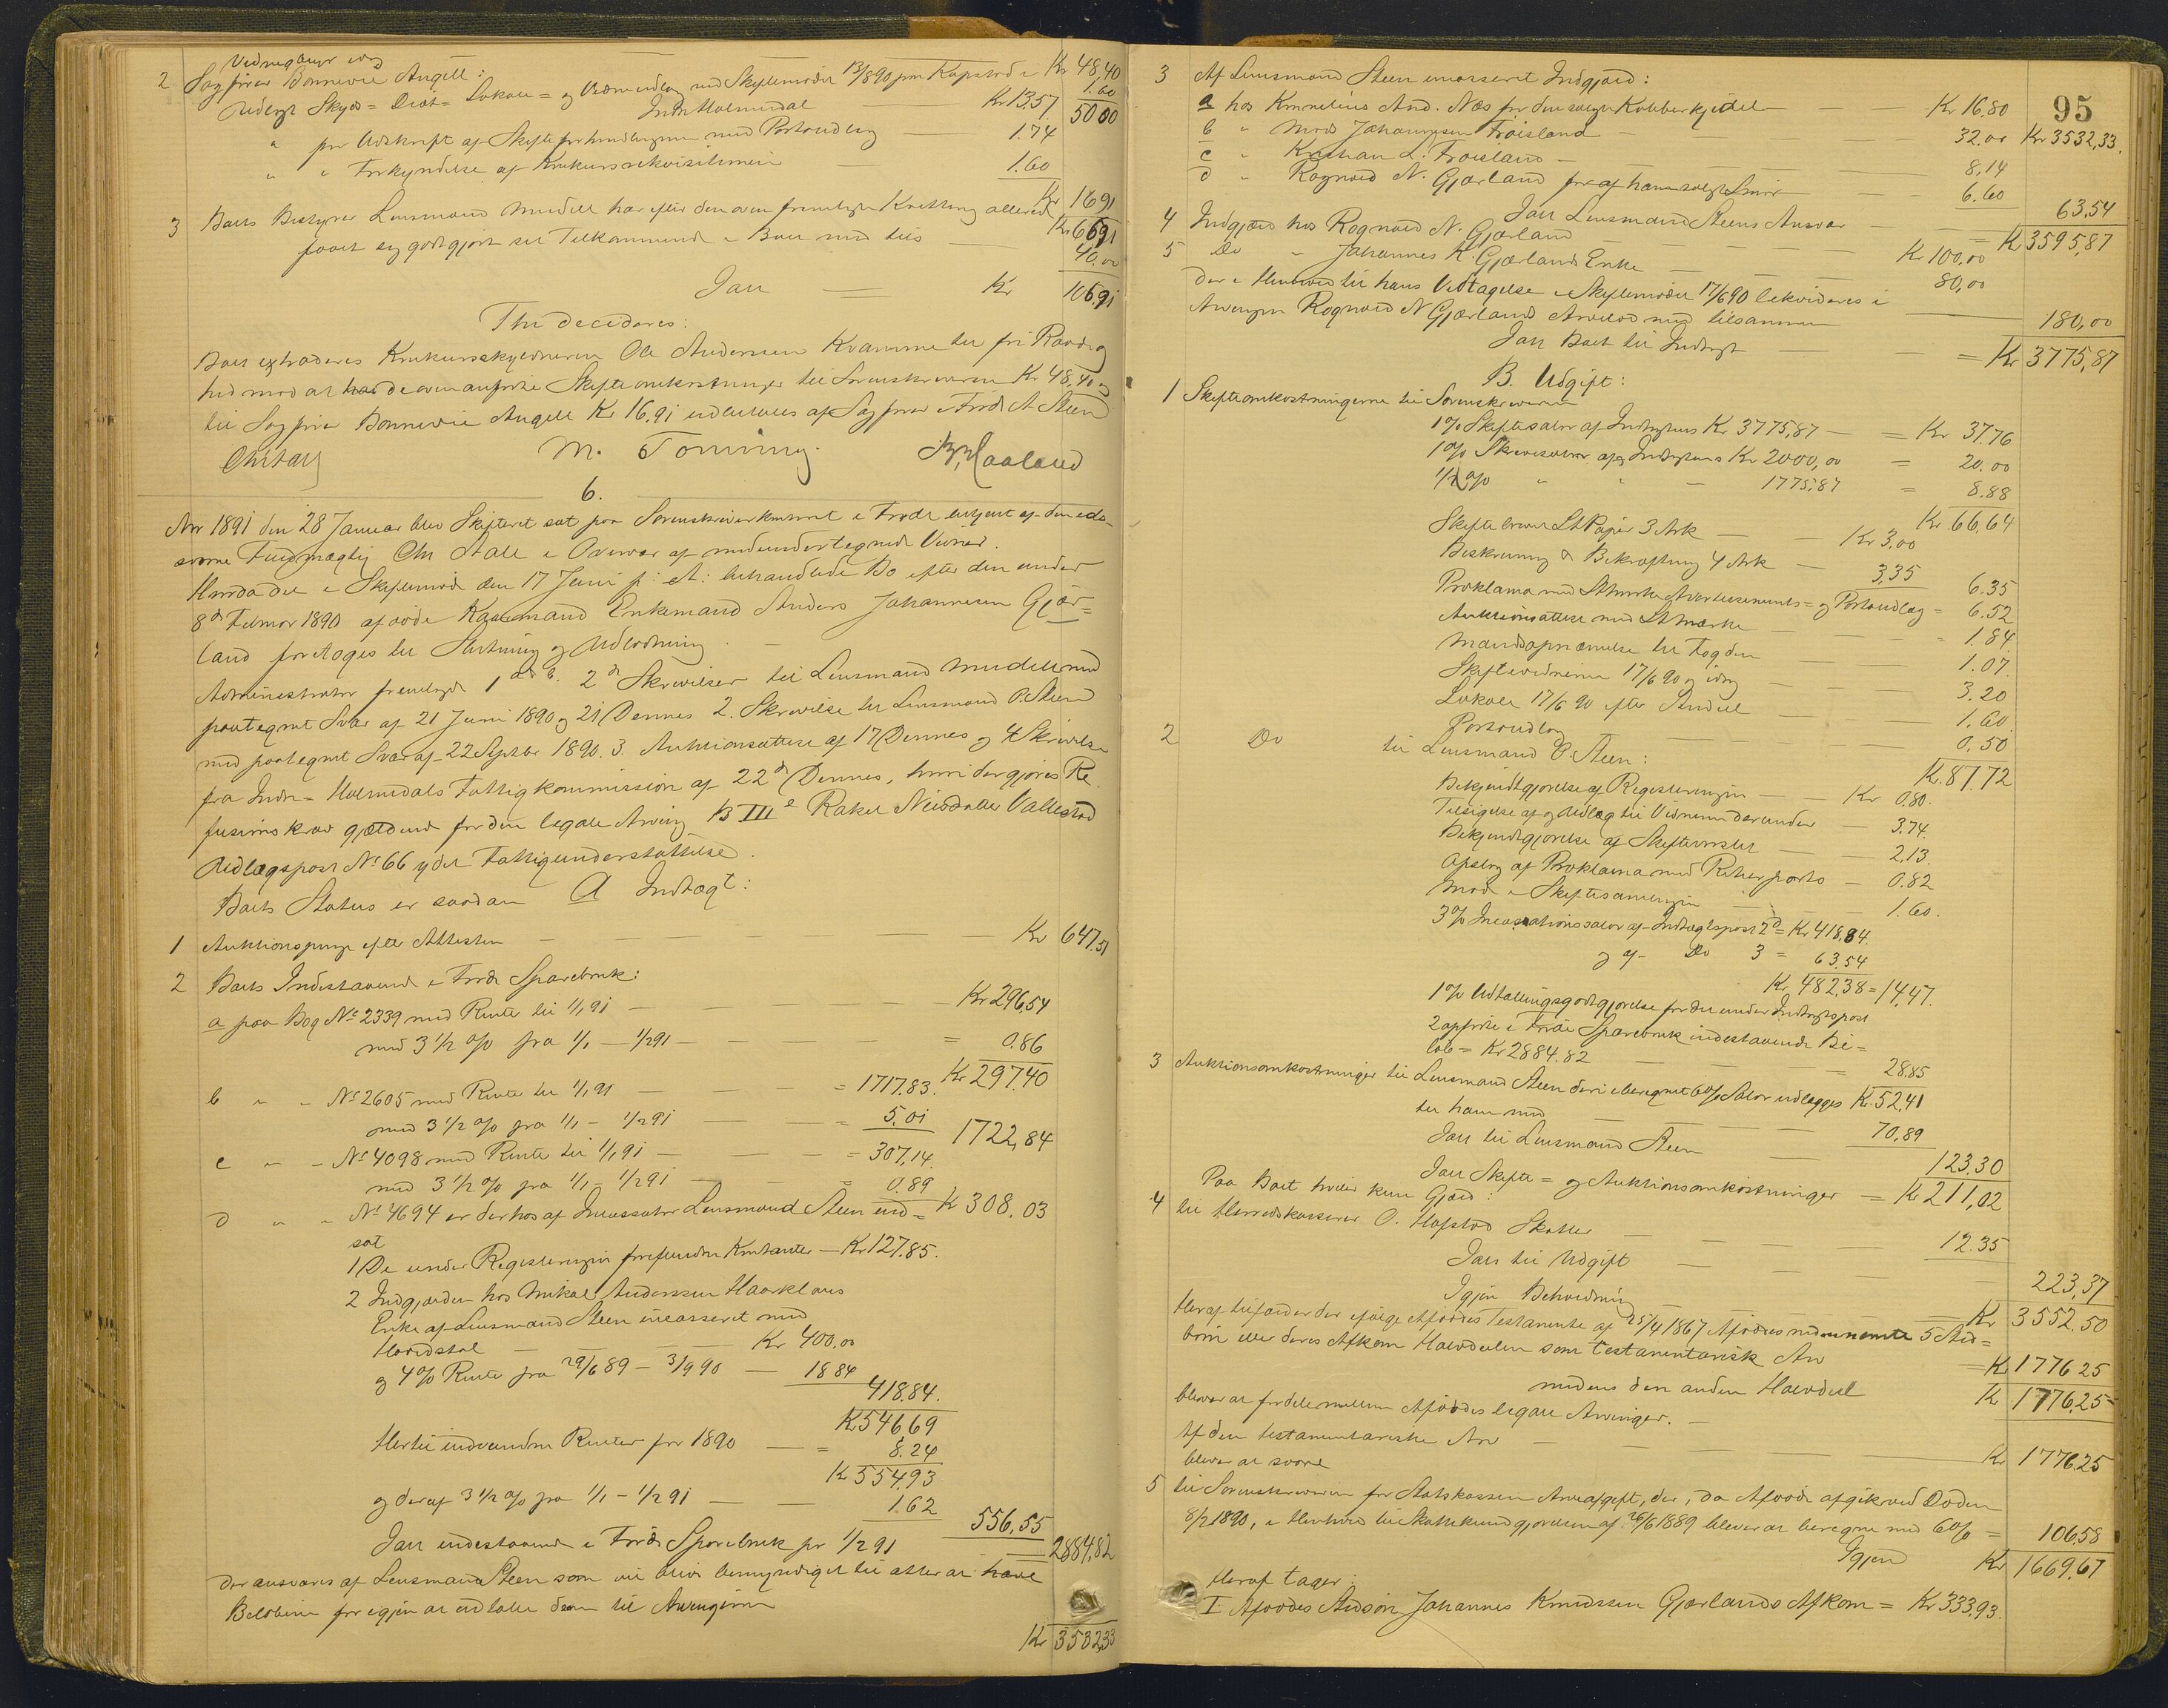 Vidnegebyr idag
2 Sagfører Bonnevie Angell: Kr 48,40
Udlagt Skyds= Diæt= Lokale= og Vidneudlæg ved Skiftemødet 13/890 1.60
Indre Holmedal Kr 13,57 50 00
" for Udskrift af Skifteforhandlingerne med Portoudlæg 1.74
" " Forkyndelse af Konkursrekvisitionen 1.60
Kr 16 91
3 Boets Bestyrer Lensmand Mindell har efter den oven fremlagte Kr 66 91
faaet sig godtgjort sit Tilkommende i Boet med til 40.00
Ialt Kr 106.91
Thi decideres:
Boet extraderes Konkursskyldneren Ole Andersen Kvamme til fri Raadig
hed mod at de ovenanførte Skifteomkostninger til Sorenskriveren Kr 48,40 og
til Sagfører Bonnevie Angell Kr 16,91 udbetales af Sagfører i Førde A Steen
Chr Stall M. Tonning.
6.
Aar 1891 den 28 Januar blev Skifteret sat paa Sorenskriverkontoret i Førde betjent af den eds-
svorne Fuldmægtig Chr Stall i Overvær af medundertegnede Vidner.
Hvorda det i Skiftemøde den 17 Juni f: A: behandlede Bo efter den under
8de Februar 1890 afdøde Enkemand Anders Johannesen Gjær=
land foretoges til Slutning og Udlodning
Administrator fremlagde 1 2de Skrivelser til Lensmand Mindell med
paategnet Svar af 21 Juni 1890 og 21 Dennes 2. Skrivelse til Lensmand O. Steen
med paategnet Svar af 22 Septbr 1890. 3. Auktionsattest af 17 Dennes og 4 Skrivelse
fra Indre= Holmedals Fattigkommission af 22de Dennes, hvori der gjøres Re
fusionskrav gjældende for den legale Arving B III 2 Rakel Nilsdatter Vallestad
Udlægspost No 66 ydet Fattigunderstøttelse.
Boets Status er saadan A Indtægt:
1 Auktionspenge efter Attesten Kr 647.51
2 Boets Indestaaende i Førde Sparebank:
a paa Bog No 2339 med Rente til 1/1 91 Kr 296,54
med 3 1/2 % fra 1/1 - 1/2 91 = 0.86
Kr 297.40
b " " No 2605 med Rente til 1/1 91 = 1717.83.
med 3 1/2 % fra 1/1 - 1/2 91 = 5.01 1722,84
c " " No 4098 med Rente til 1/1 91 = 307,14.
med 3 1/2 % fra 1/1 - 1/2 91 = 0.89
Kr 308.03
d " " No 4694 er derhos af Incassator Lensmand Steen ind=
sat
1 De under Registreringen forefundne Kontanter - Kr 127.85.
2 Indgjælden hos Mikal Anderssen Haarklaus
Enke af Lensmand Steen incasseret med
Hovedstol Kr 400,00
og 4 % Rente fra 29/6 89 - 3/9 90 18 84
418.84.
Kr 546,69
Hertil indvundne Renter for 1890 = 8.24
Kr 554.93
og deraf 3 1/2 % fra 1/1 - 1/2 91 1.62
556,55
Ialt indestaaende i Førde Sparebank pr 1/2 91 2884,82
der ansvares af Lensmand Steen som vil blive bemyndiget til atter at hæve
Beløbene for igjen at udlodde dem til Arvingerne
Kr 3532,33
95
3 Af Lensmand Steen incasseret Indgjæld:
a hos Kornelius And. Næs for den solgte Kobberkjedel Kr 16,80 Kr 3532,33.
b " Mons Johannesen Frøisland 32.00
c " Kristian L. Frøisland 8,14
d " Ragnald N. Gjærland for af ham solgt Smør 6.60
63,54
Ialt Lensmand Steens Ansvar = Kr 3595,87
4 Indgjæld hos Rognald N. Gjærland Kr 100,00
5 Do " Johannes K. Gjærlands Enke 80,00
der i Henhold til hans Vedtagelse i Skiftemødet 17/6 90 likvideres i
Arvingen Rognald N Gjærlands Arvelod med tilsammen 180,00
Ialt Boet til Indtægt = Kr 3775,87
B. Udgift:
1 Skifteomkostningerne til Sorenskriveren
1 % Skiftesalær af Indtægtens Kr 3775,87 = Kr 37.76
1 % Skriversalær af Indtægtens Kr 2000,00 = 20.00
1/2 % " " 1775,87 = 8.88
Kr 66,64
Skiftebrevet St Papir 3 Ark Kr 3,00
Beskrivning & Bekræftning 4 Ark 3,35 6.35
Proklama med Stmærke Avertissements= og Portoudlæg = 6.52
Auktionsattest med St Mærke = 1.84
Mandsopnævnelse til Fogden 1.07
Skiftevidnerne 17/6 90 og idag 3.20
Lokale 17/6 90 efter Mindell 1.60
Portoudlæg 0.50
Kr. 87,72
2 Do til Lensmand O. Steen:
Bekjendtgjørelse af Registreringen Kr 0,80.
Tilsigelse af og Udlæg til Vidnerne derunder 3.74.
Bekjendtgjørelse af Skiftevarslet 2,13.
Opslag af Proklama med Returporto 0.82
Møde i Skiftesamlingen 1.60.
3 % Incassationssalær af Indtægtspost 2d = Kr 418.84.
og af Do 3 = 63.54
Kr. 482,38 = 14,47.
1 % Udtællingsgodtgjørelse for det under Indtægtspost
2 opførte i Førde Sparebank indestaaende Be=
løb = Kr 2884.82 = 28.85
Kr. 52,41
3 Auktionsomkostninger til Lensmand Steen deri iberegnet 6 % Salær udlægges
til ham med 70,89
Ialt til Lensmand Steen 123.30
Ialt Skifte= og Auktionsomkostninger = Kr 211,02
Paa Boet hviler kun Gjæld:
4 til Herredskasserer O. Hafstad Skatter 12.35
Ialt til Udgift 223,37
Igjen Beholdning Kr 3552.50
Heraf tilfalder der ifølge Afdødes Testamente af 25/4 1867 Afdødes nedennævnte 5 Sted=
børn eller deres Afkom Halvdelen som testamentarisk Arv = Kr 1776 25
medens den anden Halvdel Kr 1776,25
bliver at fordele mellem Afdødes legale Arvinger.
Af den testamentariske Arv Kr 1776.25
bliver at svare
5 til Sorenskriveren for Statskassen Arveafgift, der, da Afdøde afgik ved Døden
8/2 1890, i Henhold til Skattekundgjørelsen af 26/6 1889 bliver at beregne med 6 % = 106,58
Igjen Kr 1669,67
Heraf tager:
I Afdødes Stedsøn Johannes Knudssen Gjærlands Afkom = Kr 333,93.